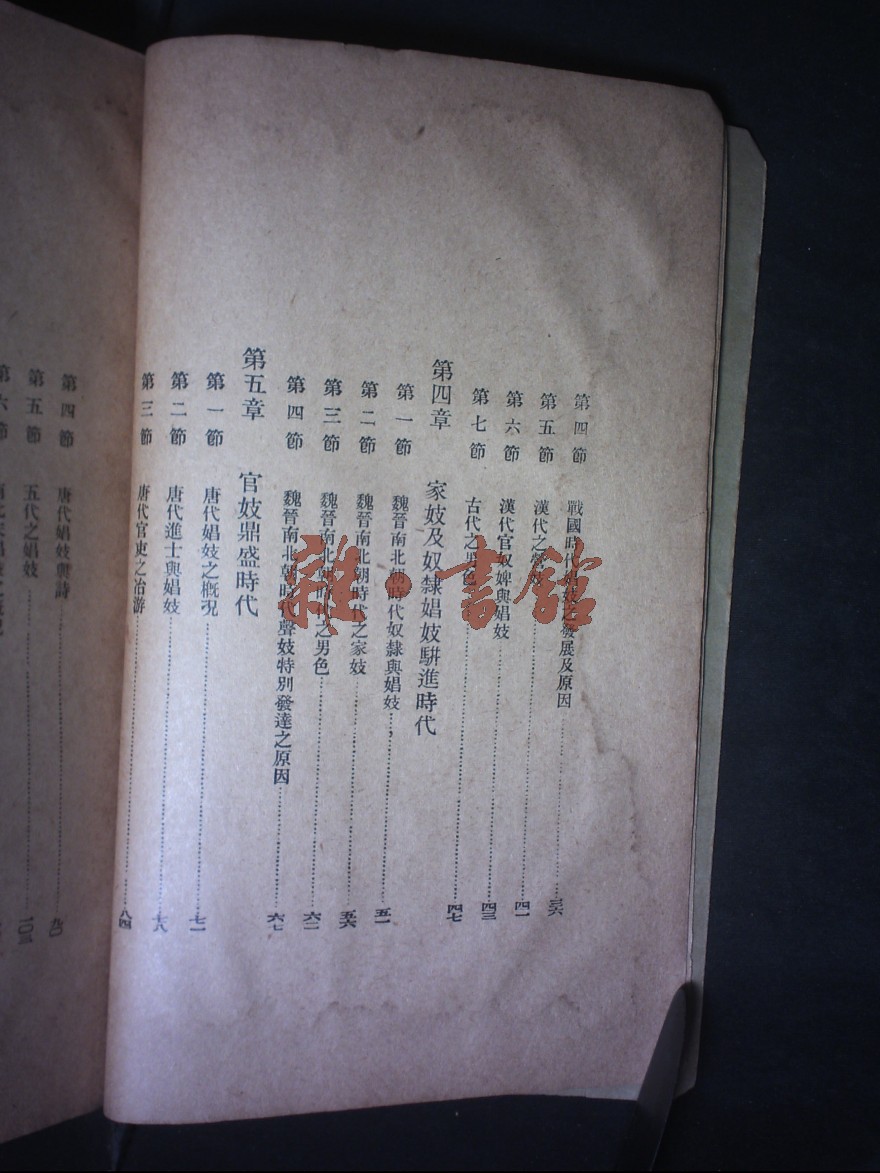 第四節 戰國時代娼妓之發展及原因 三六
第五節 漢代之營妓 四一
第六節 漢代官奴婢與娼妓 四三
第七節 古代之男色 四七
第四章 家妓及奴隸娼妓駢進時代
第一節 魏晉南北朝時代奴隸與娼妓 五一
第二節 魏晉南北朝時代之家妓 五六
第三節 魏晉南北朝時代之男色 六二
第四節 魏晉南北朝時代聲妓特別發達之原因 六七
第五章 官妓鼎盛時代
第一節 唐代娼妓之概況 七一
第二節 唐代進士與娼妓 七八
第三節 唐代官吏之冶游 八四
第四節 唐代娼妓與詩 九〇
第五節 五代之娼妓 一〇三
第六節
雜·書館